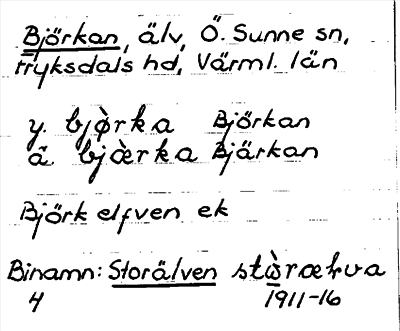 Björkan, älv, Ö. Sunne sn,
Fryksdals hd, Värml. län
y. bjø̀rka Björkan
ä. bjæ̀rka Bjärkan
Björk elfven ek
Binamn: Storälven
4 1911-16